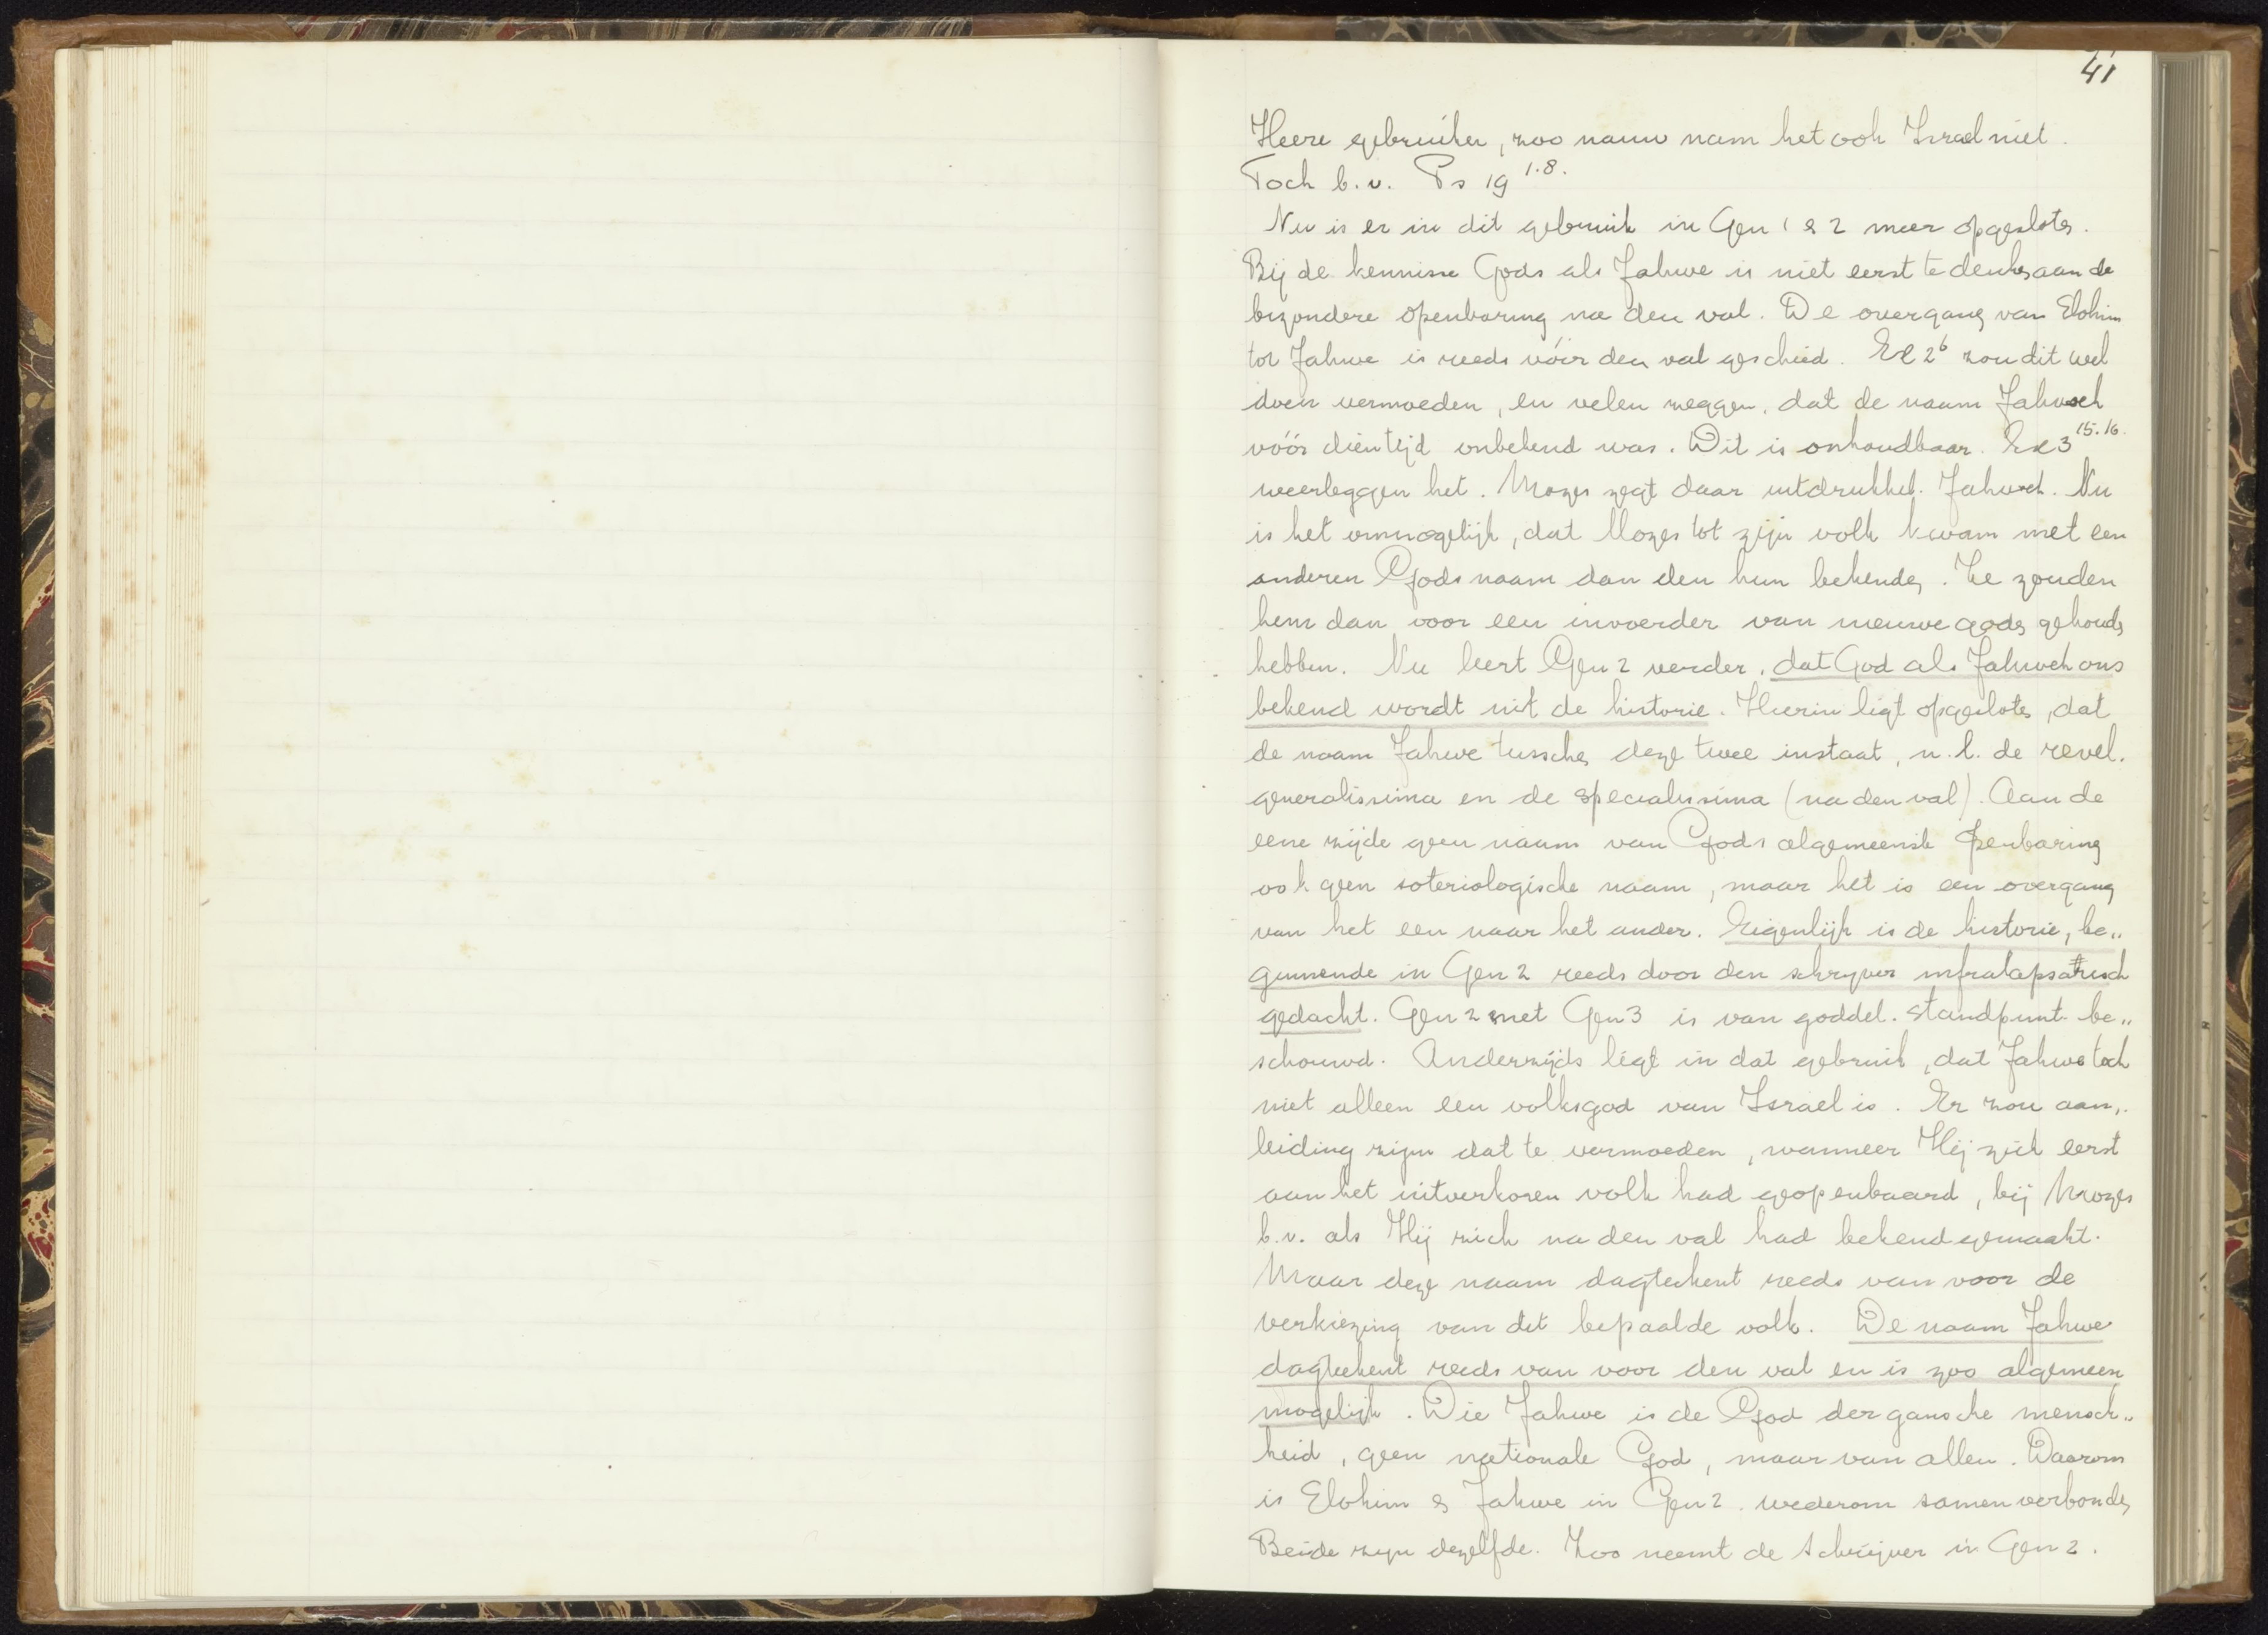 41
Heere gebruiken, zoo nauw nam het ook Israel niet.
Toch b.v. Ps 19 1.8.
Nu is er in dit gebruik in Gen 1 & 2 meer opgesloten.
Bij de kennisse Gods als Jahwe is niet eerst te denken aan de
bizondere openbaring na den val. De overgang van Elohim
tot Jahwe is reeds vóór den val geschied. Ex 2 6 zou dit wel
doen vermoeden, en velen zeggen, dat de naam Jahweh
vóór dien tijd onbekend was. Dit is onhoudbaar. Ex 3 15.16.
weerleggen het. Mozes zegt daar uitdrukkel. Jahweh. Nu
is het onmogelijk, dat Mozes tot zijn volk kwam met een
anderen Godsnaam dan den hun bekenden. Ze zouden
hem dan voor een invoerder van nieuwe goden gehouden
hebben. Nu leert Gen 2 verder, dat God als Jahweh ons
bekend wordt uit de historie. Hierin ligt opgesloten, dat
de naam Jahwe tusschen deze twee instaat, n.l. de revel.
generalissima en de specialissima (na den val). Aan de
eene zijde geen naam van Gods algemeenste openbaring
ook geen soteriologische naam, maar het is een overgang
van het een naar het ander. Eigenlijk is de historie, be„
ginnende in Gen 2 reeds door den schrijver infralapsarisch
gedacht. Gen 2 met Gen 3 is van goddel. standpunt be„
schouwd. Anderzijds ligt in dat gebruik, dat Jahwe toch
niet alleen een volksgod van Israel is. Er zou aan„
leiding zijn dat te vermoeden, wanneer Hij zich eerst
aan het uitverkoren volk had geopenbaard, bij Mozes
b.v. als Hij zich na den val had bekend gemaakt.
Maar deze naam dagteekent reeds van voor de
verkiezing van dit bepaalde volk. De naam Jahwe
dagteekent reeds van voor den val en is zoo algemeen
mogelijk. Die Jahwe is de God der gansche mensch„
heid, geen nationale God, maar van allen. Daarom
is Elohim & Jahwe in Gen 2 wederom samenverbonden
Beide zijn dezelfde. Zoo neemt de schrijver in Gen 2.